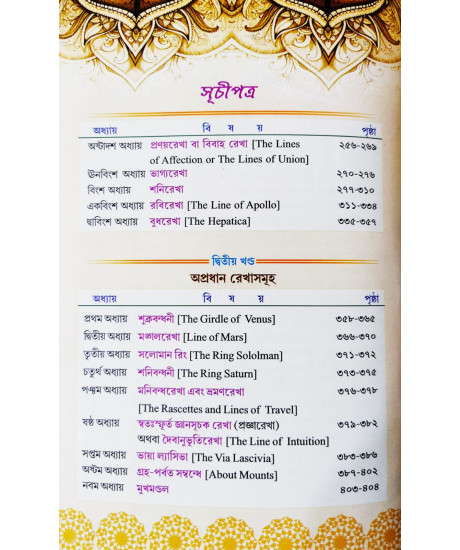 সূচীপত্র
অধ্যায় বি ষ য় পৃষ্ঠা
অষ্টাদশ অধ্যায় প্রণয়রেখা বা বিবাহ রেখা [The Lines ২৫৬-২৬৯
of Affection or The Lines of Union]
ঊনবিংশ অধ্যায় ভাগ্যরেখা ২৭০-২৭৬
বিংশ অধ্যায় শনিরেখা ২৭৭-৩১০
একবিংশ অধ্যায় রবিরেখা [The Line of Apollo] ৩১১-৩৩৪
দ্বাবিংশ অধ্যায় বুধরেখা [The Hepatica] ৩৩৫-৩৫৭
দ্বিতীয় খণ্ড
অপ্রধান রেখাসমূহ
অধ্যায় বি ষ য় পৃষ্ঠা
প্রথম অধ্যায় শুক্রবন্ধনী [The Girdle of Venus] ৩৫৮-৩৬৫
দ্বিতীয় অধ্যায় মঙ্গলরেখা [Line of Mars] ৩৬৬-৩৭০
তৃতীয় অধ্যায় সলোমান রিং [The Ring Sololman] ৩৭১-৩৭২
চতুর্থ অধ্যায় শনিবন্ধনী [The Ring Saturn] ৩৭৩-৩৭৫
পঞ্চম অধ্যায় মনিবন্ধরেখা এবং ভ্রমণরেখা ৩৭৬-৩৭৮
[The Rascettes and Lines of Travel]
ষষ্ঠ অধ্যায় স্বতঃস্ফূর্ত জ্ঞানসূচক রেখা (প্রজ্ঞারেখা) ৩৭৯-৩৮২
অথবা দৈবানুভূতিরেখা [The Line of Intuition]
সপ্তম অধ্যায় ভায়া ল্যাসিভা [The Via Lascivia] ৩৮৩-৩৮৬
অষ্টম অধ্যায় গ্রহ-পর্বত সম্বন্ধে [About Mounts] ৩৮৭-৪০২
নবম অধ্যায় মুখমণ্ডল ৪০৩-৪০৪